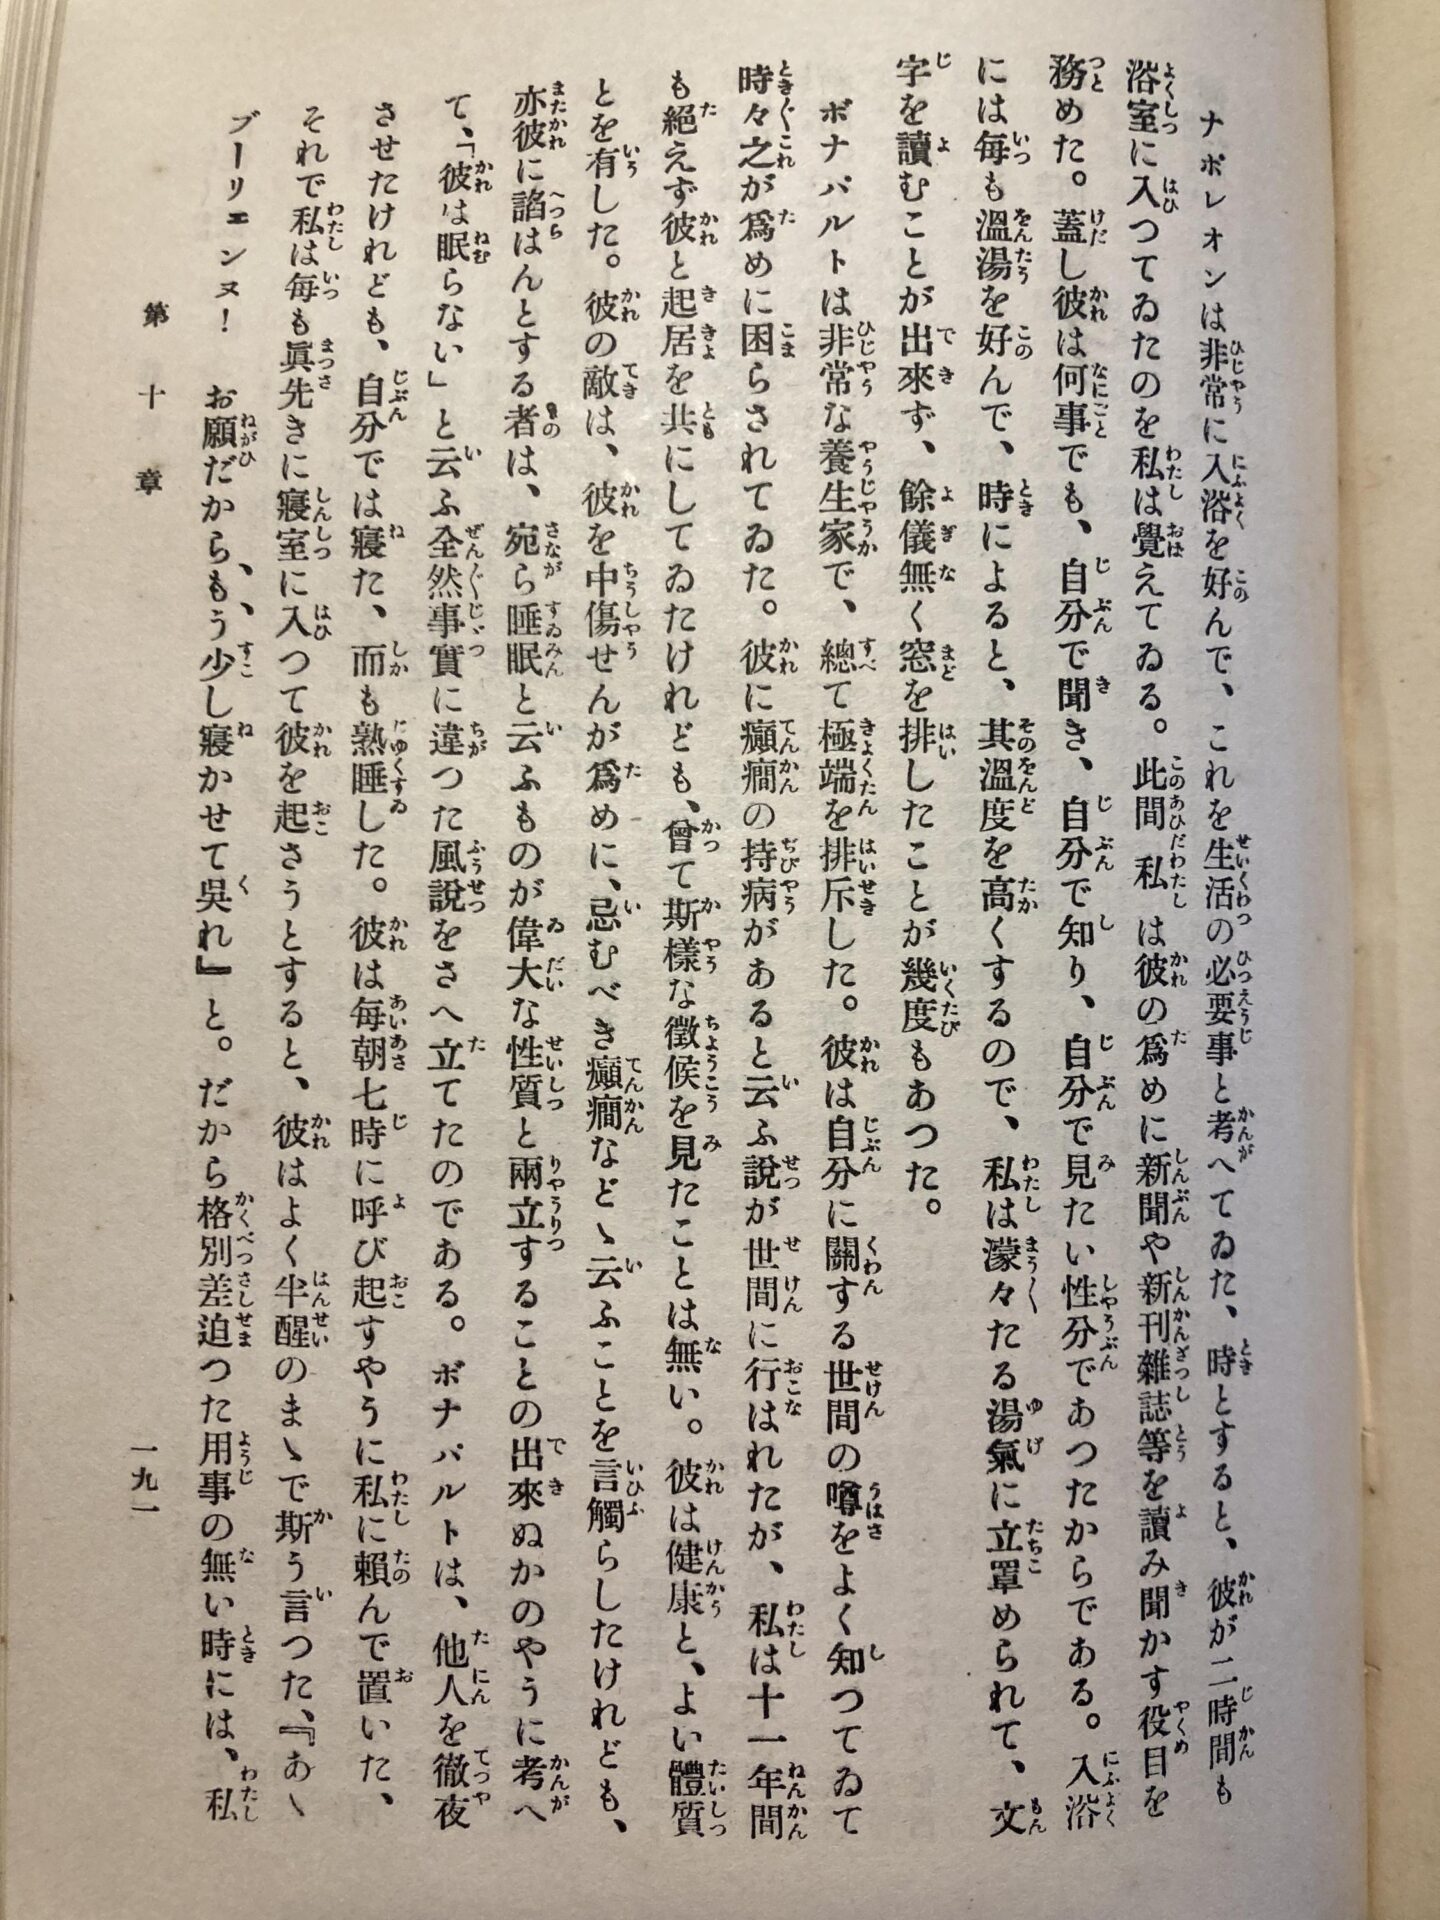 ナポレオンは非常に入浴を好んで、これを生活の必要事と考へてゐた、時とすると、彼が二時間も
浴室に入つてゐたのを私は覺えてゐる。此間私は彼の爲めに新聞や新刊雜誌等を讀み聞かす役目を
務めた。蓋し彼は何事でも、自分で聞き、自分で知り、自分で見たい性分であつたからである。入浴
には毎も溫湯を好んで、時によると、其溫度を高くするので、私は濛々たる湯氣に立罩められて、文
字を讀むことが出來ず、餘儀無く窓を排したことが幾度もあつた。
ボナパルトは非常な養生家で、總て極端を排斥した。彼は自分に關する世間の噂をよく知つてゐて
時々之が爲めに困らされてゐた。彼に癲癇の持病があると云ふ說が世間に行はれたが、私は十一年間
も絕えず彼と起居を共にしてゐたけれども、曾て斯樣な徵候を見たことは無い。彼は健康と、よい體質
とを有した。彼の敵は、彼を中傷せんが爲めに、忌むべき癲癇などゝ云ふことを言觸らしたけれども、
亦彼に諂はんとする者は、宛ら睡眠と云ふものが偉大な性質と兩立することの出來ぬかのやうに考へ
て、「彼は眠らない」と云ふ全然事實に違つた風說をさへ立てたのである。ボナパルトは、他人を徹夜
させたけれども、自分では寢た、而も熟睡した。彼は每朝七時に呼び起すやうに私に賴んで置いた、
それで私は每も眞先きに寢室に入つて彼を起さうとすると、彼はよく半醒のまゝで斯う言つた、『あゝ
ブーリエンヌ！　お願だから、もう少し寢かせて吳れ』と。だから格別差迫つた用事の無い時には、私
第十章
一九一